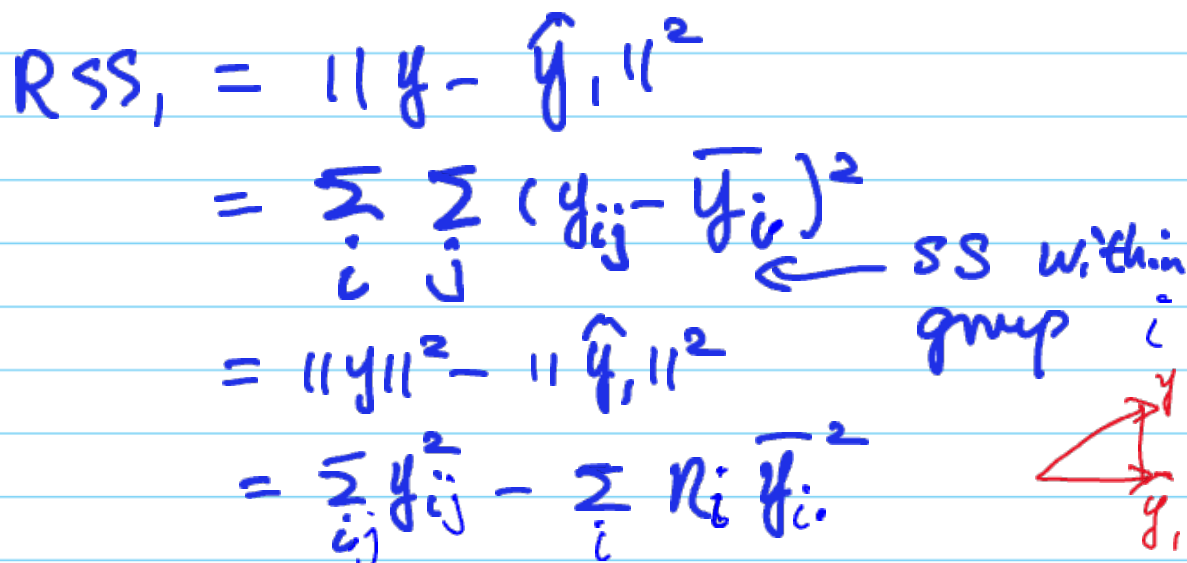 RSS₁ = ||y - ŷ₁||²
= Σ_i Σ_j (y_ij - ȳ_i.)²
← SS within
group i
= ||y||² - ||ŷ₁||²
y
= Σ_ij y_ij² - Σ_i n_i ȳ_i.²
y₁